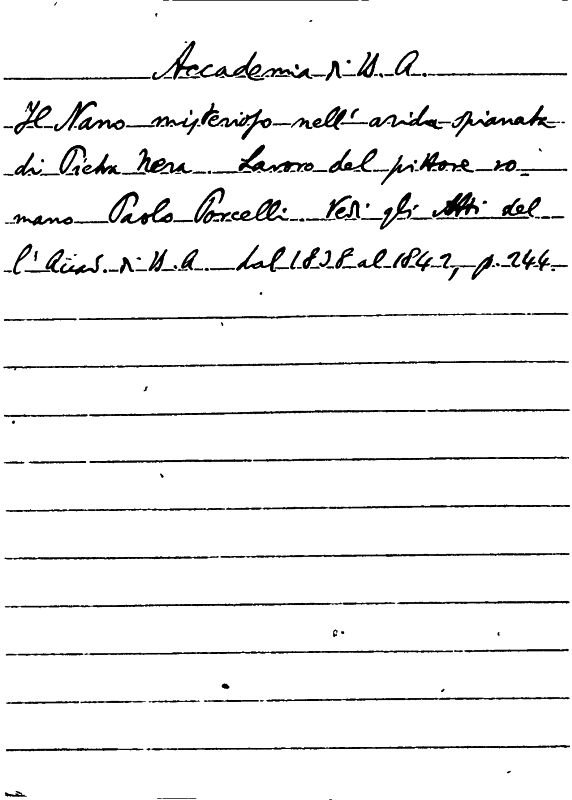 Accademia di B. A.
Il Nano misterioso nell' arida spianata
di Pietra Nera. Lavoro del pittore ro-
mano Paolo Porcelli. Vedi gli Atti del
l' Accad. di B. A. dal 1838 al 1842, p. 244.